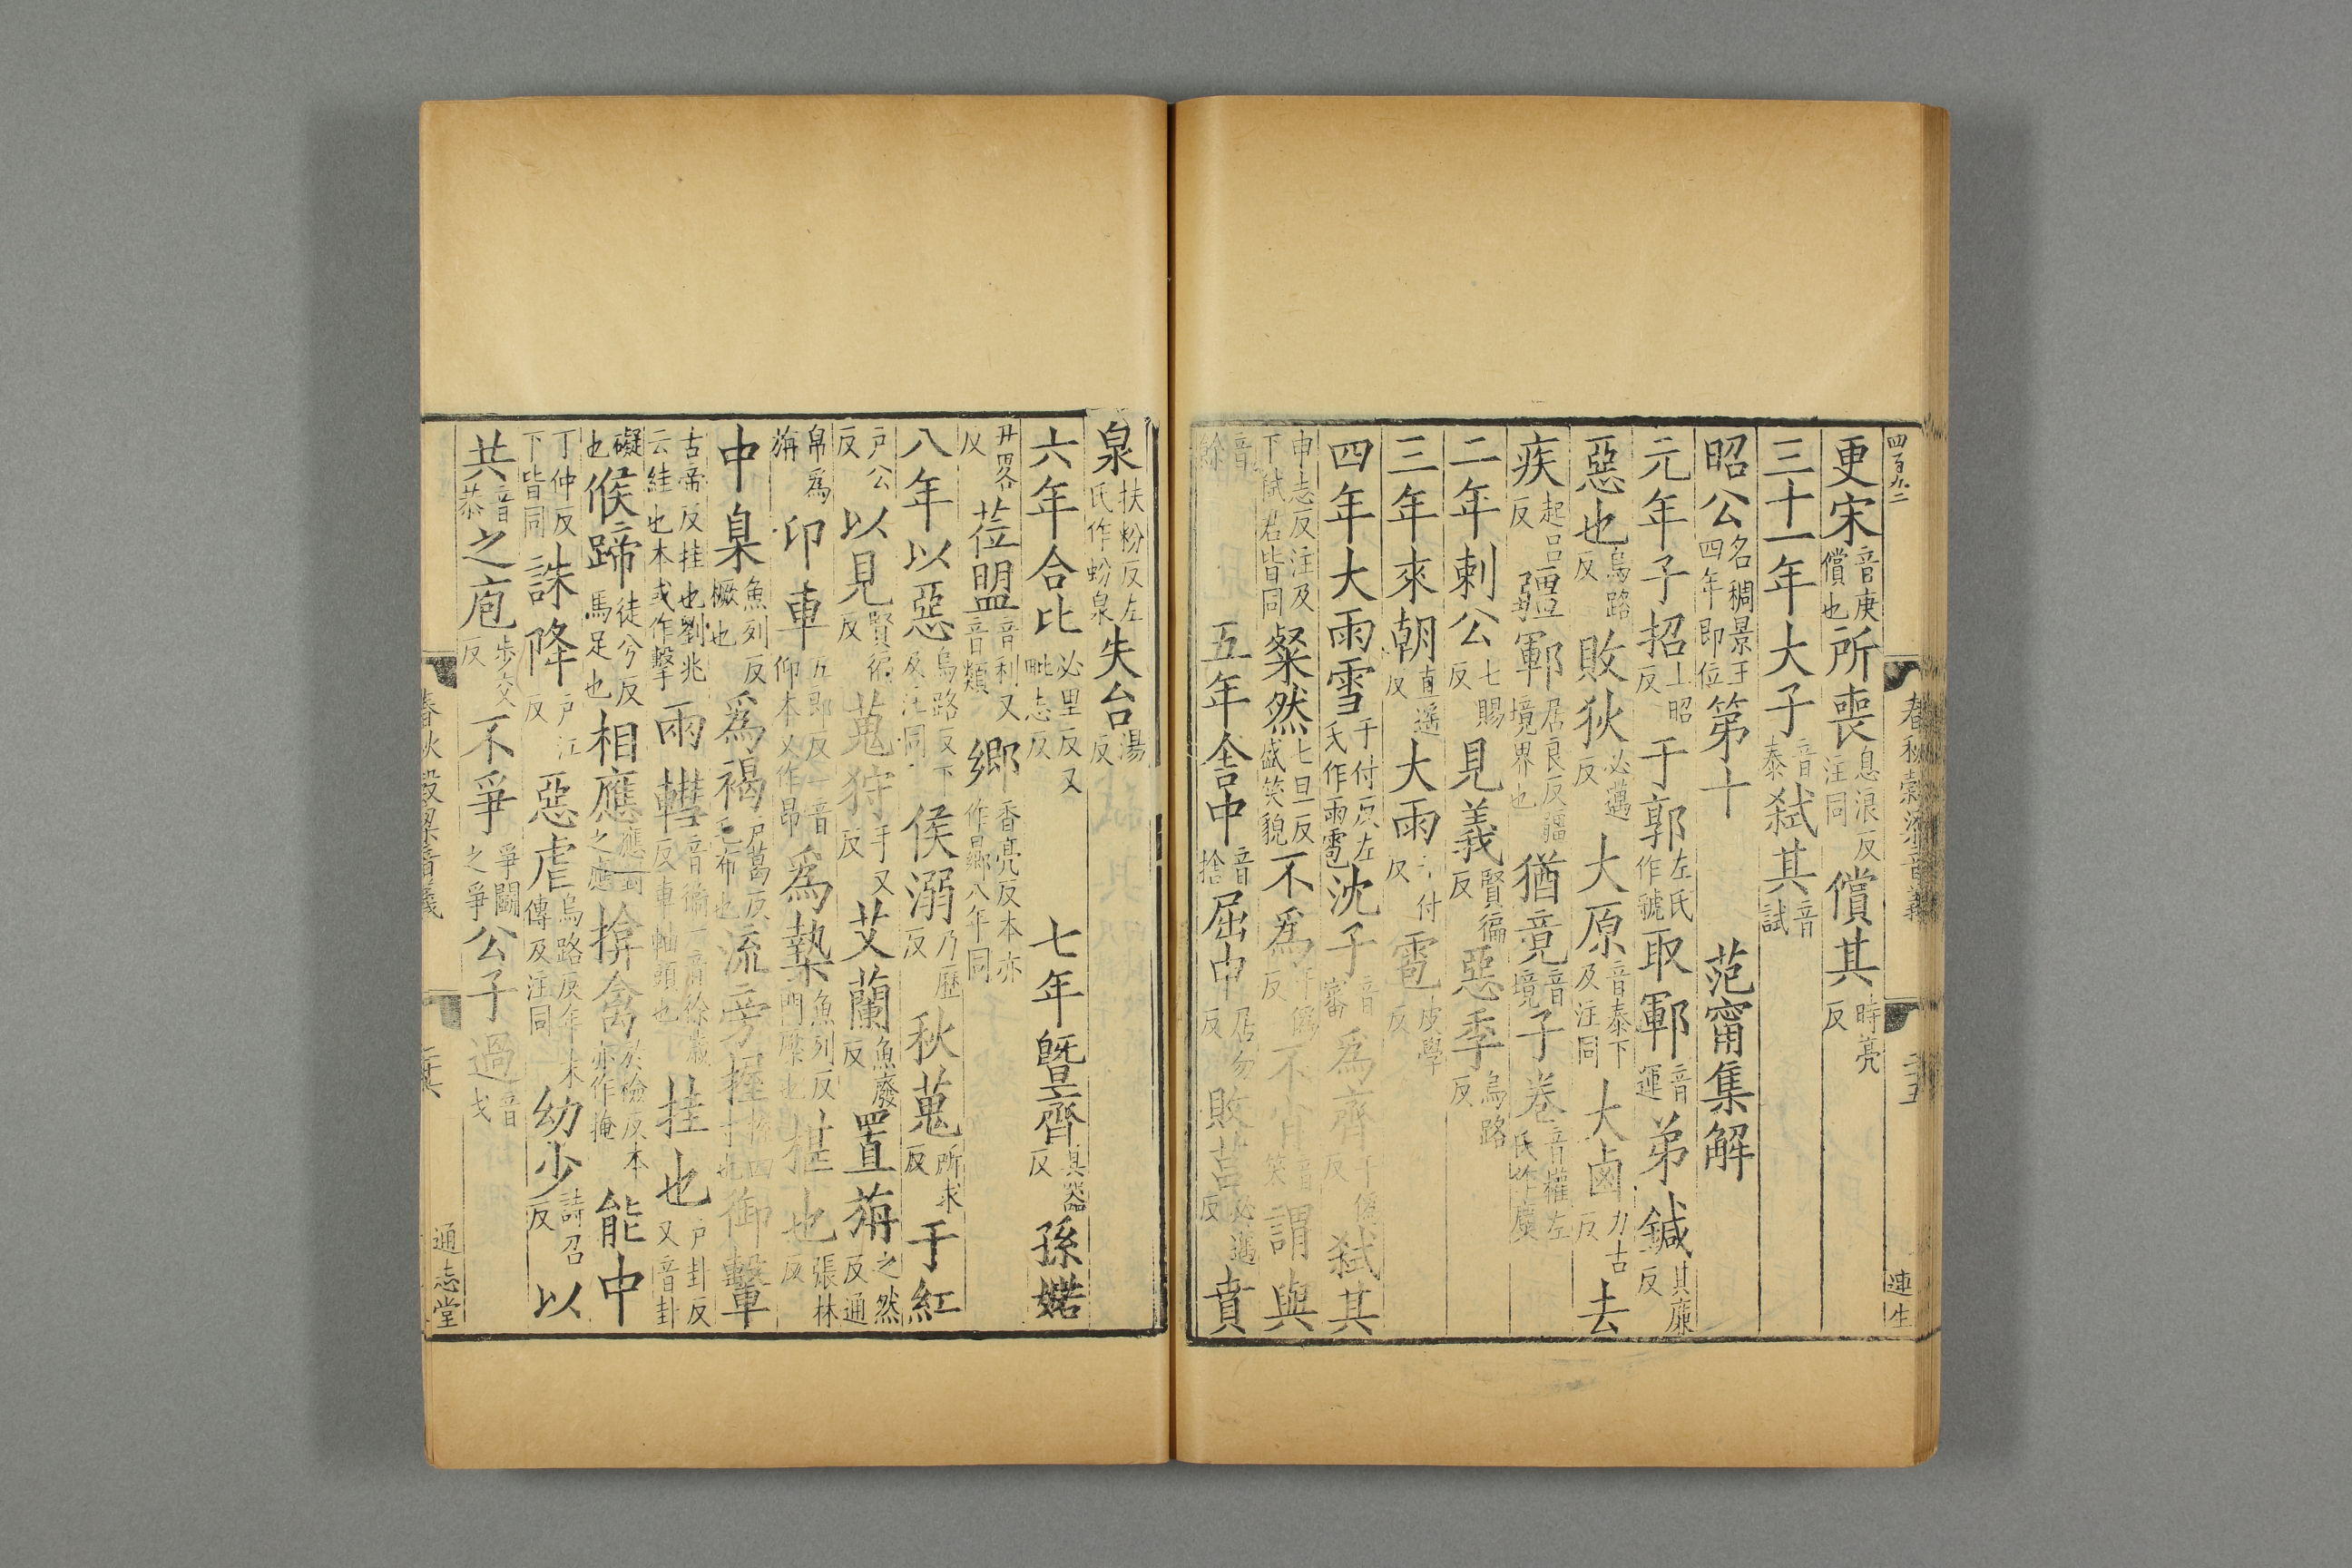 四百九二
春秋穀梁音義
二十五
連生
更宋音庚償也所喪息浪反注同償其時亮反
三十一年大子音泰弑其音試
昭公名稠景王四年即位第十 范甯集解
元年子招上昭反于郭左氏作虢取鄆音運弟鍼其廉反
惡也烏路反敗狄必邁反大原音泰下及注同大鹵力古反去
疾起呂反疆鄆居良反疆境界也猶竟音境子卷音權左氏作麇
二年刺公七賜反見義賢徧反惡季烏路反
三年來朝直遥反大雨于付反雹皮學反
四年大雨雪于付反左氏作雨雹沈子音審爲齊于僞反弑其
申志反注及下弑君皆同粲然七旦反盛笑貌不爲于僞反不肖音笑謂與
音餘 五年舍中音捨屈申居勿反敗莒必邁反賁
泉扶粉反左氏作蚡泉失台湯反
六年合比必里反又毗志反 七年曁齊其器反孫婼
丑略反莅盟音利又音類鄉香亮反本亦作曏八年同
八年以惡烏路反下及注同侯溺乃歷反秋蒐所求反于紅
户公反以見賢徧反蒐狩手又反艾蘭魚廢反置旃之然反通
帛爲旃卬車五郎反一音仰本又作昂爲槷魚列反門橜也椹也張林反
中臬魚列反橜也爲褐户葛反毛布也流旁握握四寸也御轚
古帝反挂也劉兆云絓也本或作擊兩轊音衞一音餘歲反車軸頭也挂也户卦反又音卦
礙也候蹄徒兮反馬足也相應應對之應揜禽於檢反本亦作掩能中
丁仲反下皆同誅降户江反惡虐烏路反年末傳及注同幼少詩召反以
共音恭之庖步交反不爭爭鬬之爭公子過音戈
春秋穀梁音義
二十六
通志堂